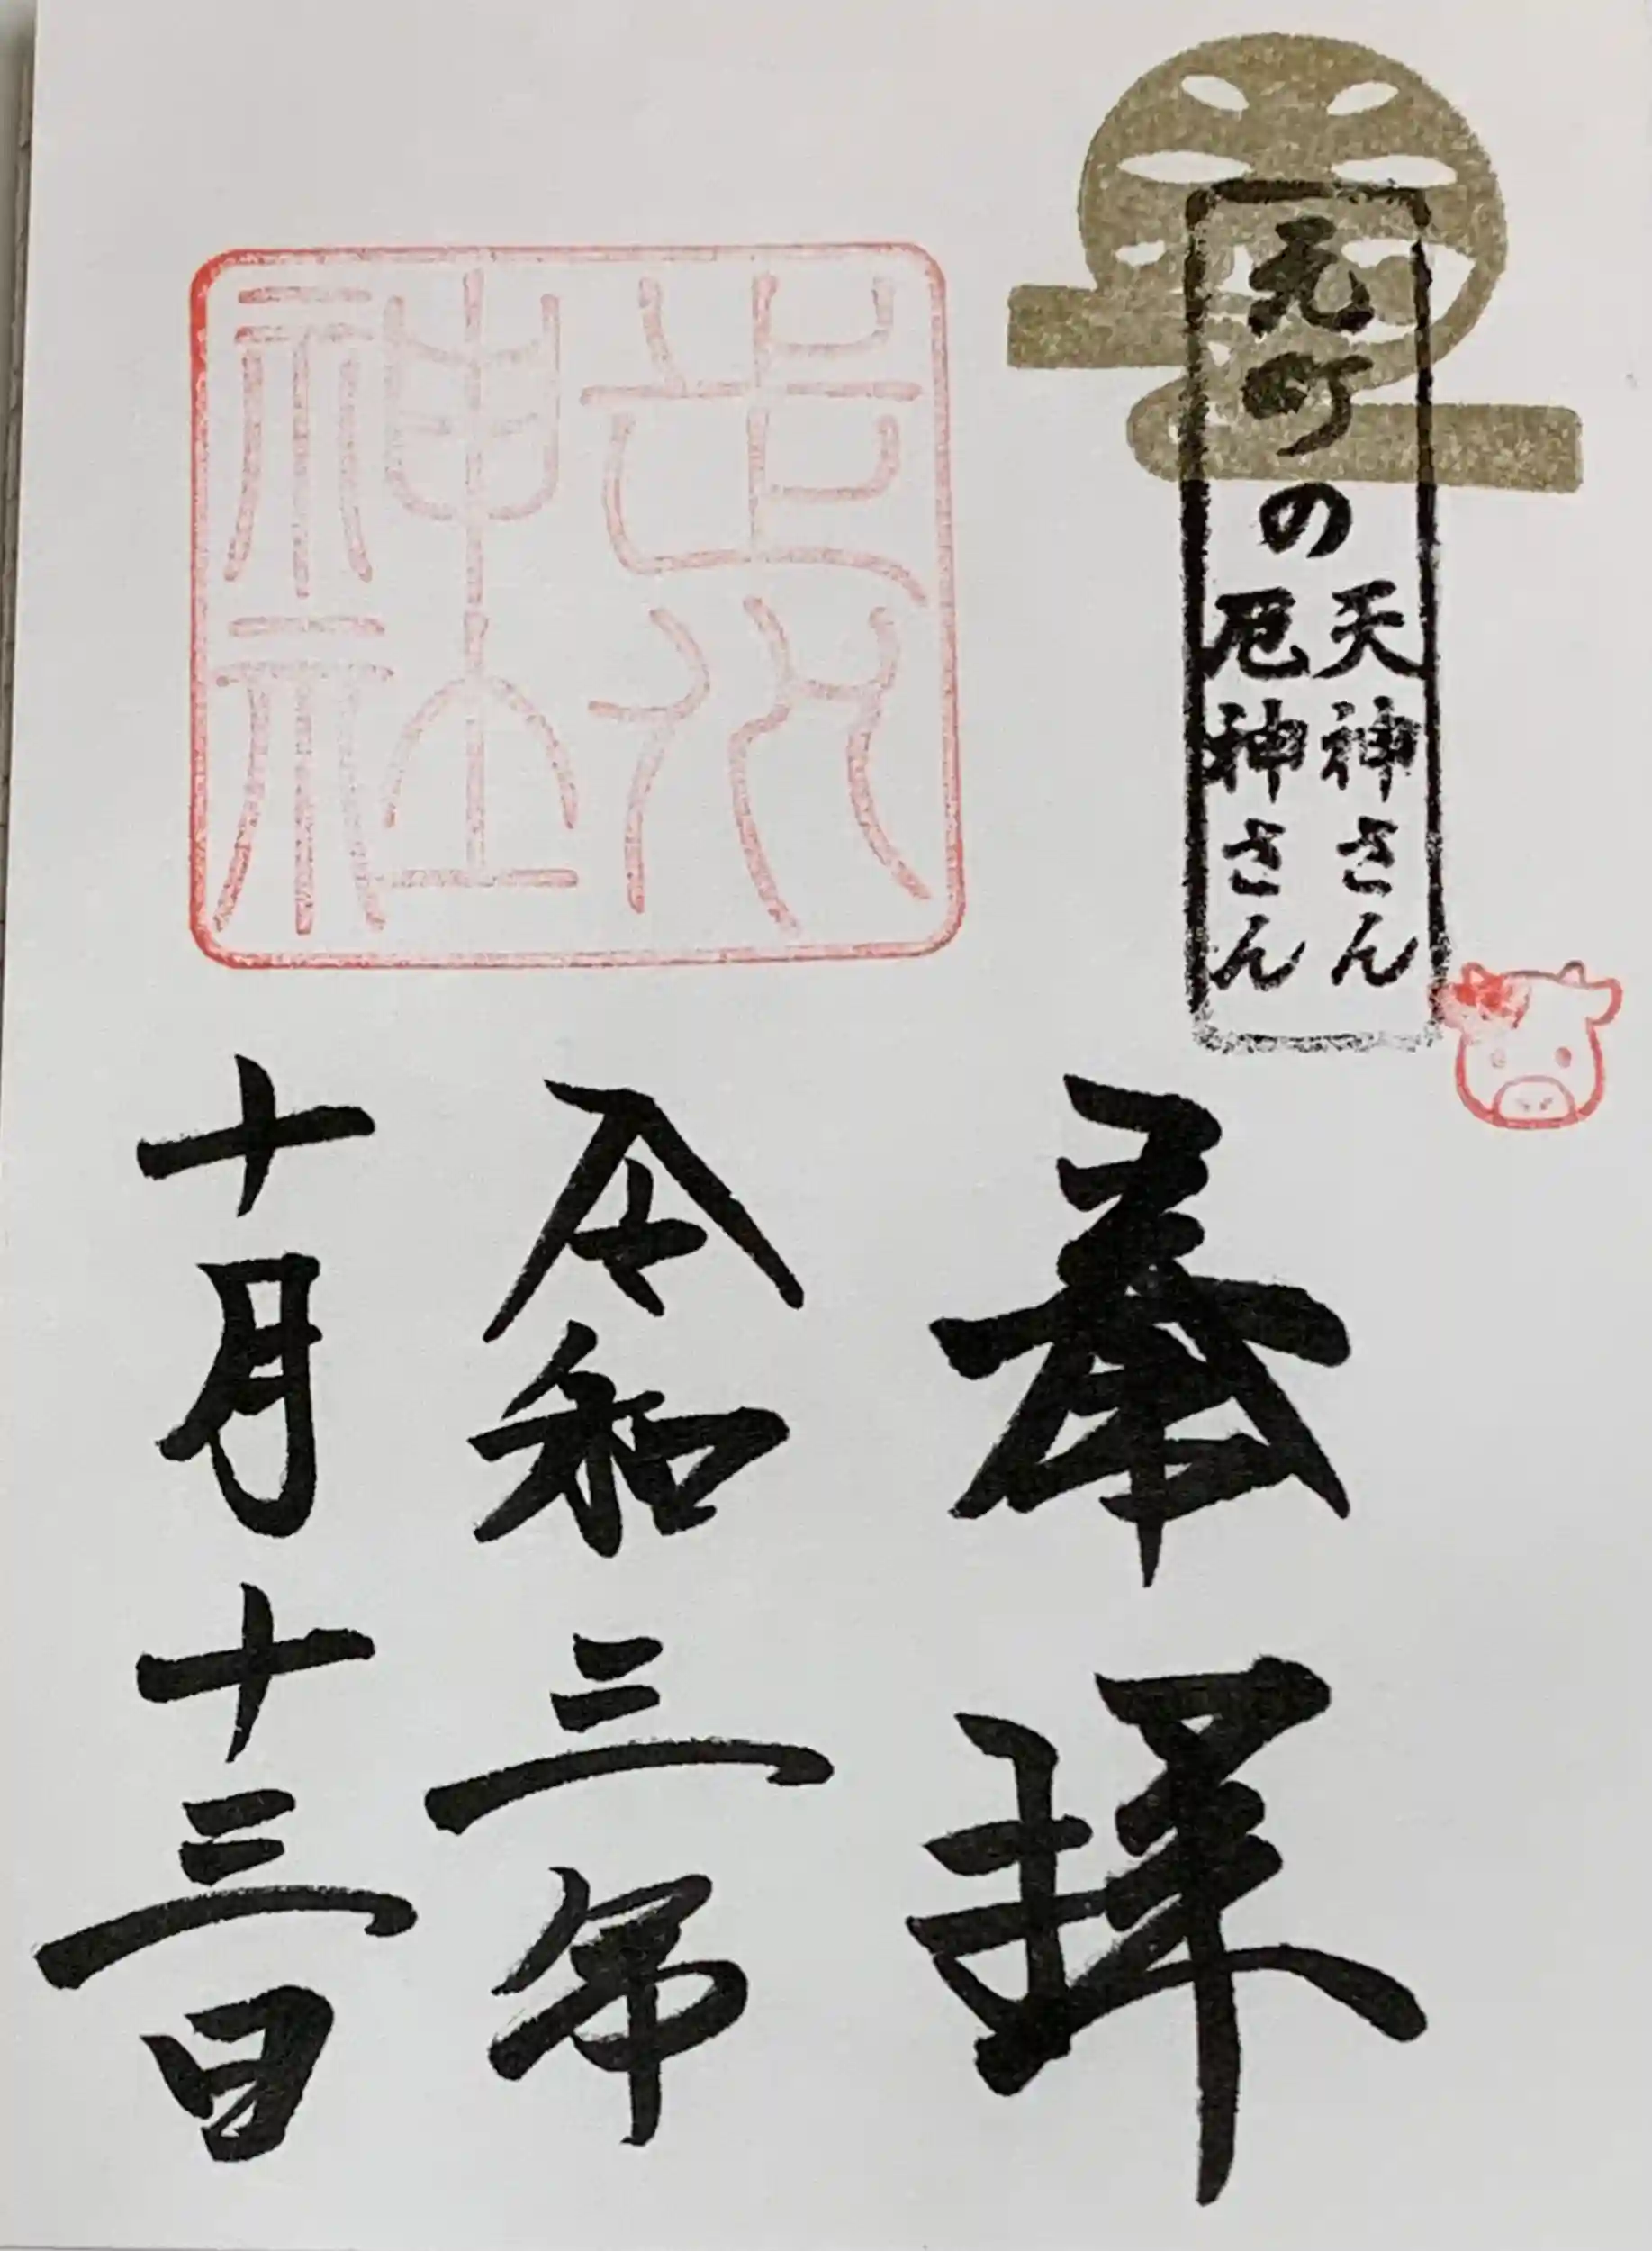 元町の
天神さん
厄神さん
奉拝
走水神社
令和三年
十月十三日